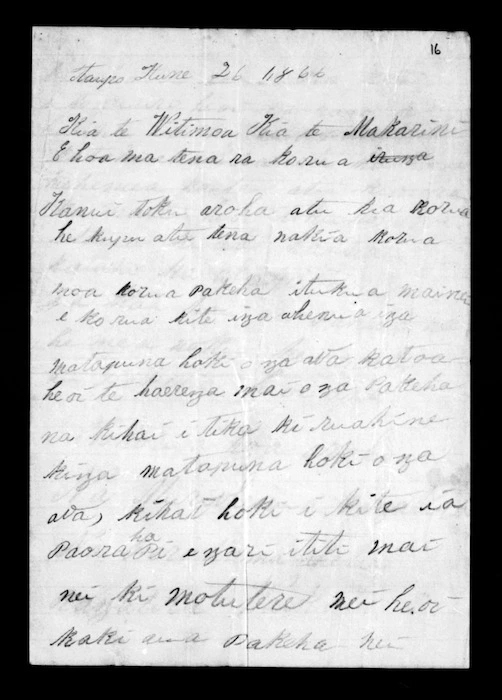 16
Taupo Hune 26 1866
Kia te Witimoa Kia te Makarini
E hoa ma tena ra korua
Kanui toku aroha atu kia korua
he kupu atu tena nakia korua
moa korua pakeha itukua mainei
e korua kite iza ahenua iza
matapuna hoki o za ava katoa
heoi te haereza mai o za Pakeha
na kihai i tika ki ruahine
kiza matapuna hoki o za
ava, kihai hoki i kite ia
Paora hapi ezari i titi mai
nei ki motutere nei he.oi
kaki ana Pakeha nei